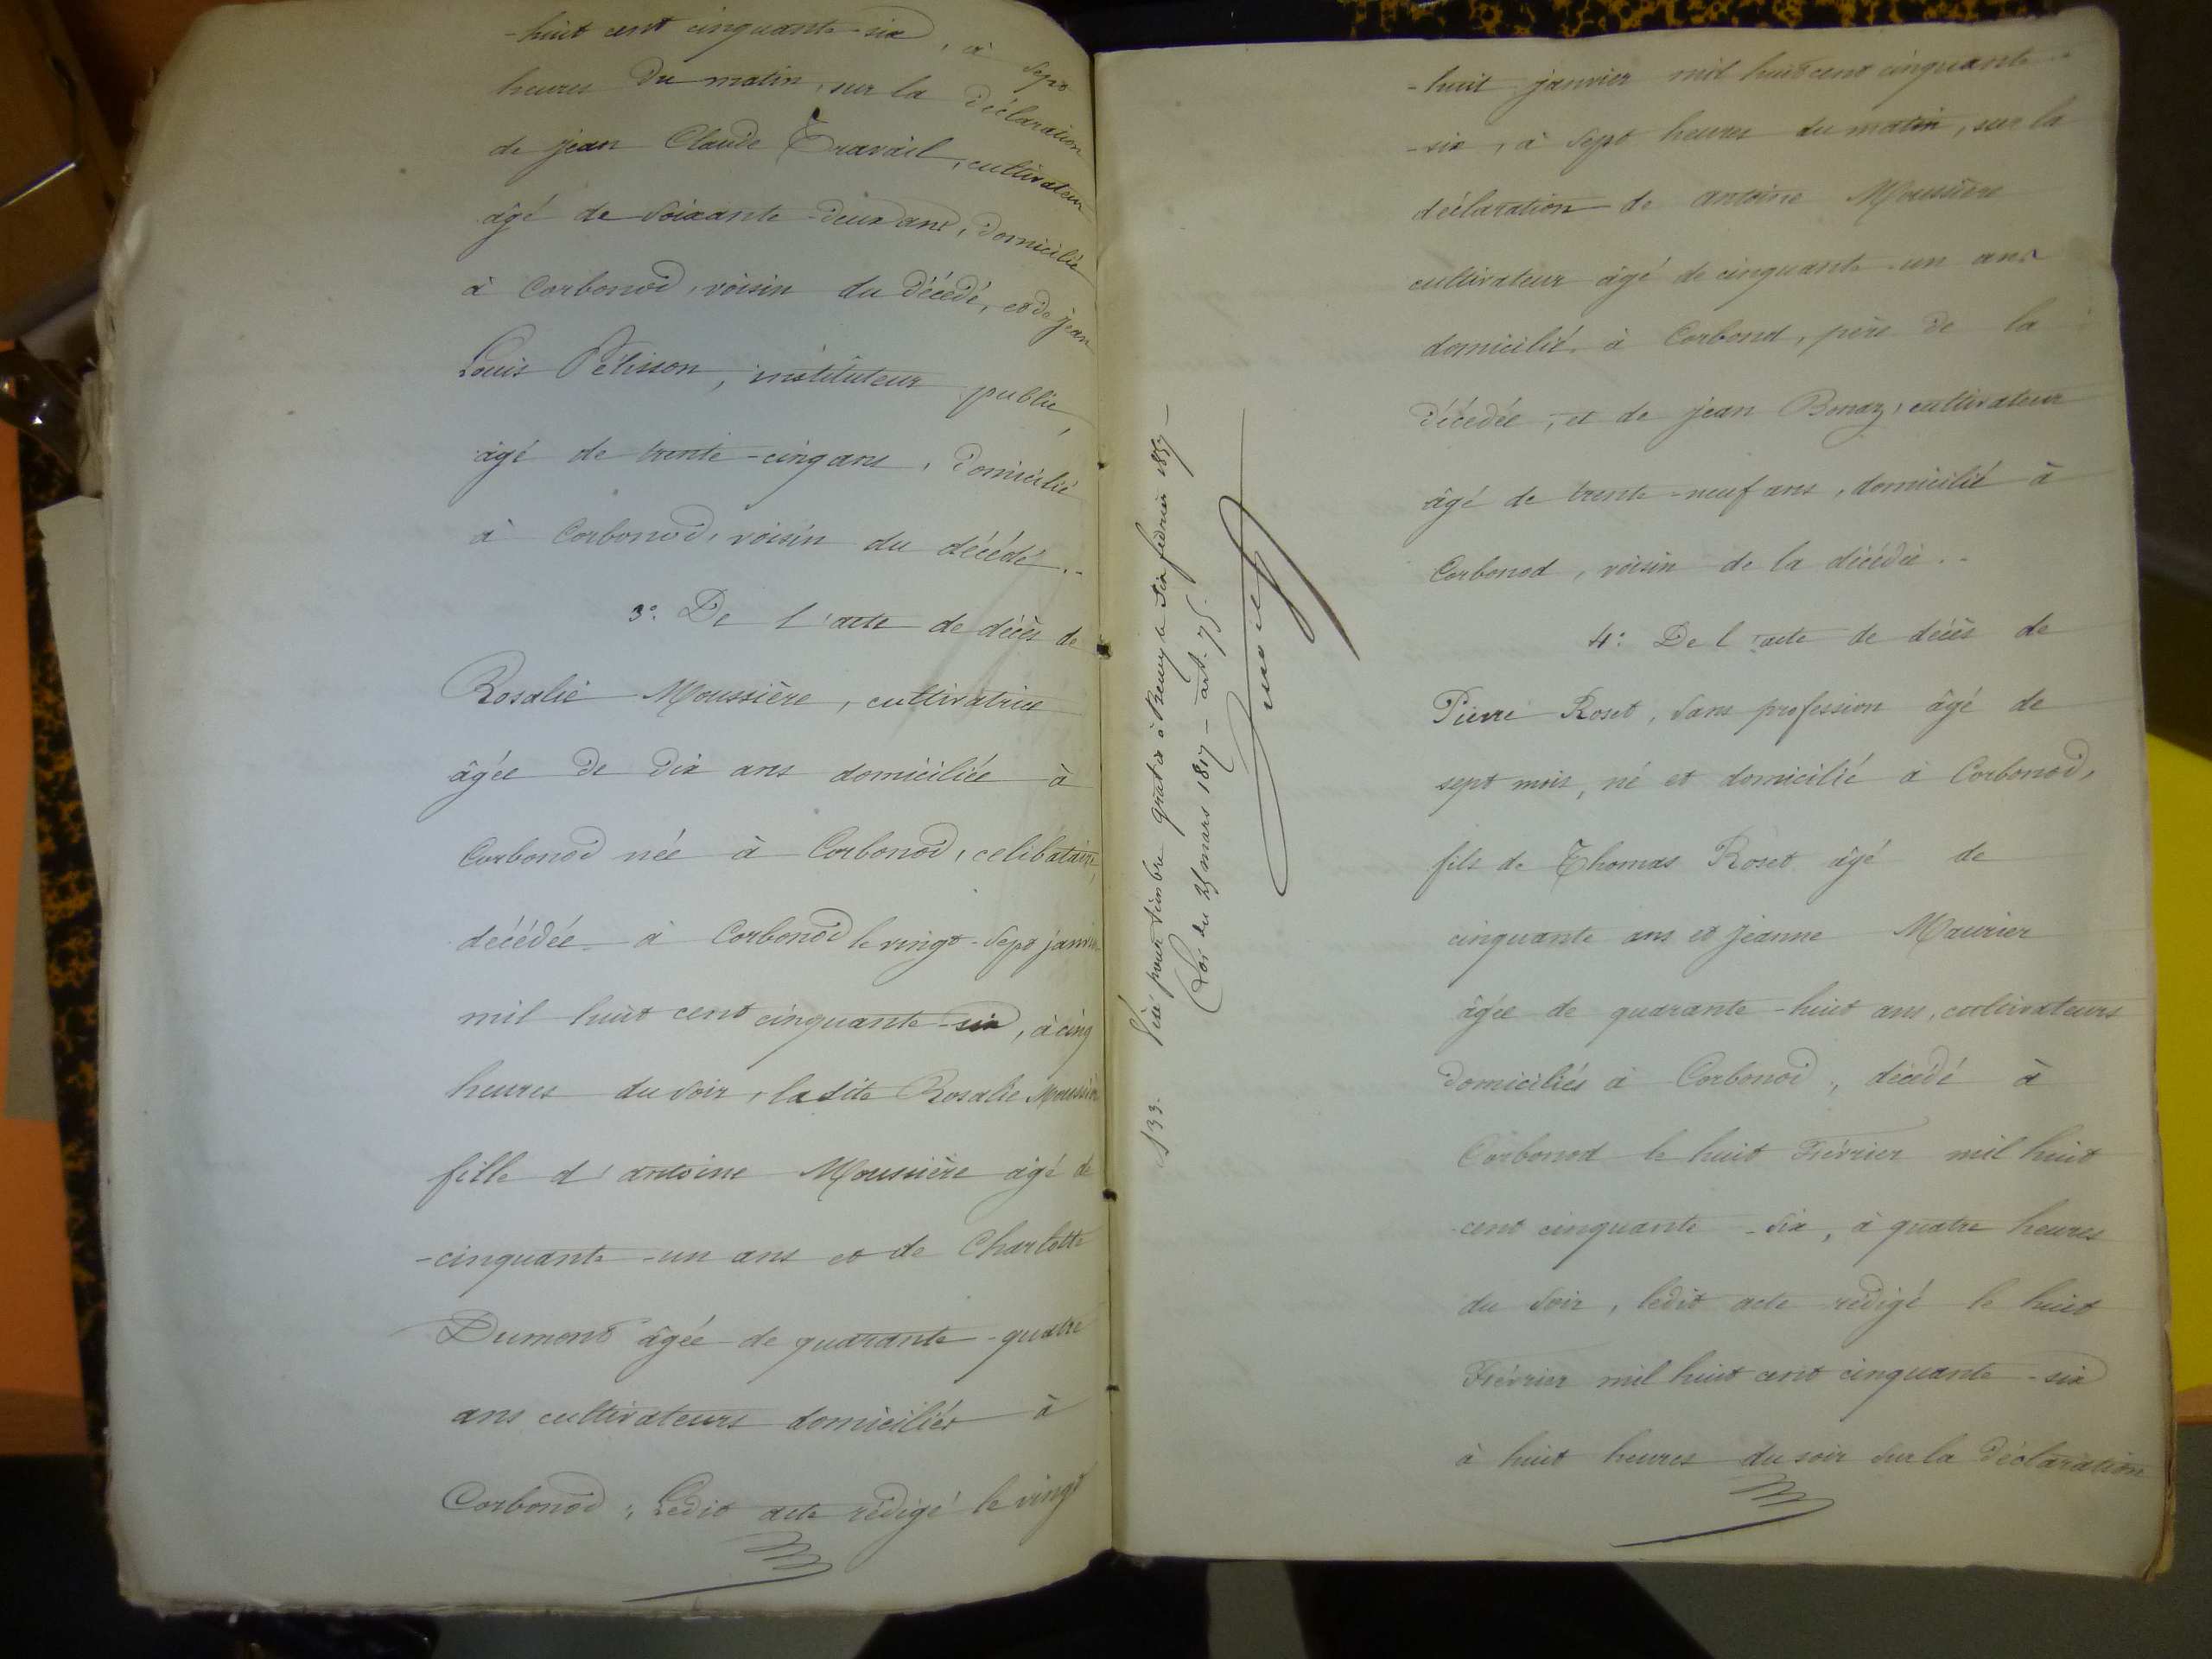 -huit cent cinquante-six, à sept
heures du matin, sur la déclaration
de jean Claude Travail, cultivateur
âgé de soixante-deux ans, domicilié
à Corbonod, voisin du décédé, et de jean
Louis Pélisson, instituteur public,
âgé de trente-cinq ans, domicilié
à Corbonod, voisin du décédé.-
3° De l'acte de décès de
Rosalie Moussière, cultivatrice
âgée de dix ans domiciliée à
Corbonod née à Corbonod, celibataire,
décédée à Corbonod le vingt-sept janvier
mil huit cent cinquante-six, à cinq
heures du soir, ladite Rosalie Moussière
fille d'antoine Moussière âgé de
-cinquante-un ans et de Charlotte
Dumont âgée de quarante-quatre
ans cultivateurs domiciliés à
Corbonod; Ledit acte rédigé le vingt
133. Visé pour timbre gratis à le six février 1857-
Loi du 25 mars 1817 - art. 75.
-huit janvier mil huit cent cinquante-
-six, à sept heures du matin, sur la
déclaration de antoine Moussière
cultivateur âgé de cinquante-un ans
domicilié à Corbond, père de la
décédée, et de jean Bonaz, cultivateur
âgé de trente-neuf ans, domicilié à
Corbonod, voisin de la décédée.-
4° De l'acte de décès de
Pierre Roset, sans profession âgé de
sept mois, né et domicilié à Corbonod,
fils de Thomas Roset âgé de
cinquante ans et jeanne Maurier
âgée de quarante-huit ans, cultivateurs
domiciliés à Corbonod, décédé à
Corbonod le huit Février mil huit
cent cinquante-six, à quatre heures
du soir, ledit acte rédigé le huit
Février mil huit cent cinquante-six
à huit heures du soir sur la déclaration